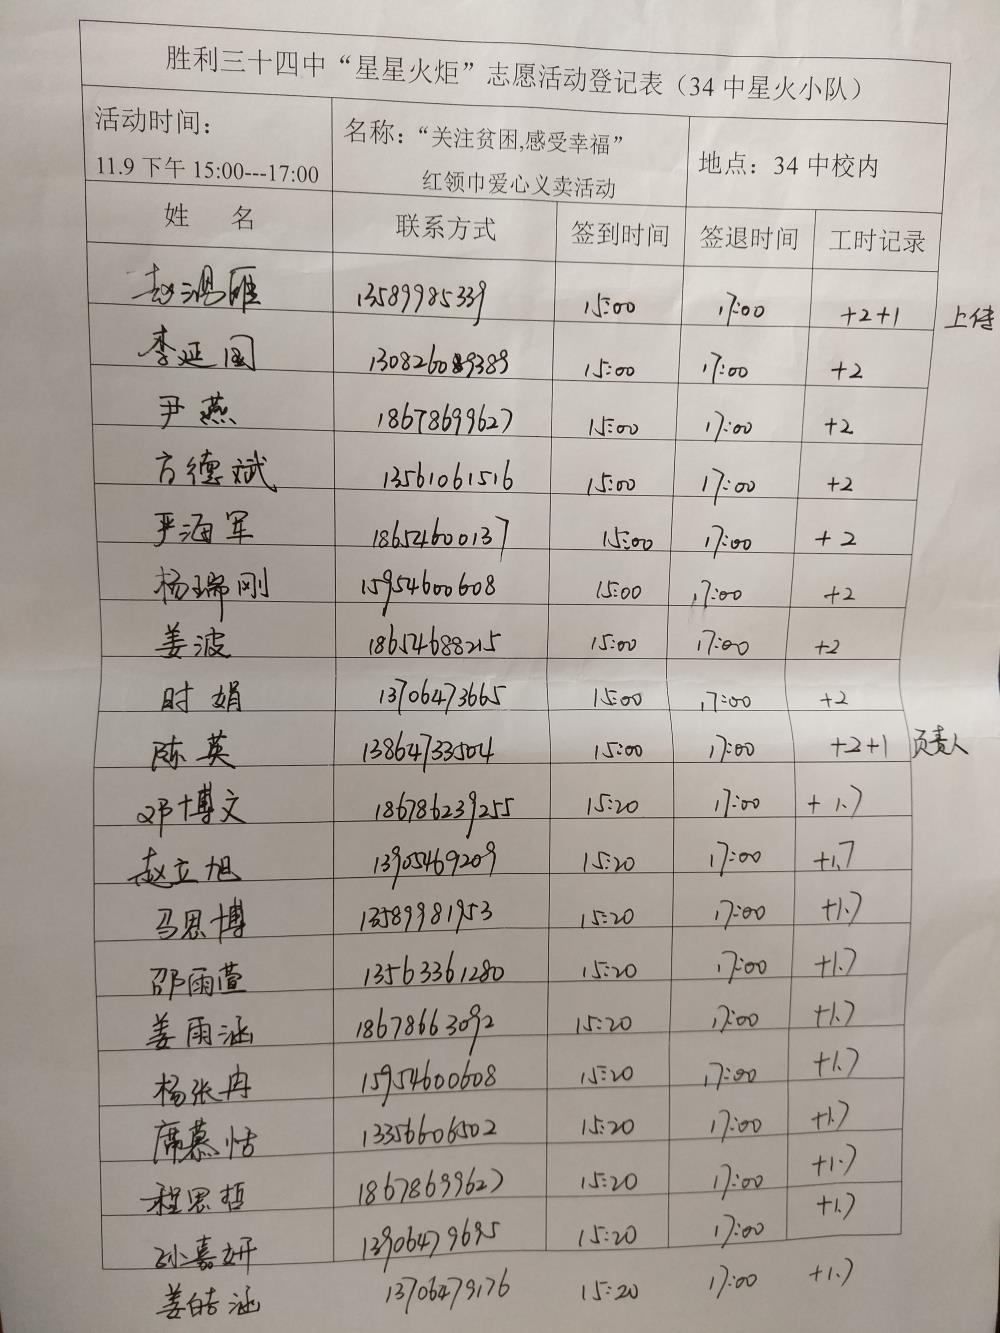 胜利三十四中“星星火炬”志愿活动登记表（34中星火小队）
活动时间： 名称：“关注贫困,感受幸福” 地点：34中校内
11.9下午15:00---17:00 红领巾爱心义卖活动
姓 名 联系方式 签到时间 签退时间 工时记录
赵鸿雁 13589985339 15:00 17:00 +2+1 上传
李延国 13082609389 15:00 17:00 +2
尹燕 18678699627 15:00 17:00 +2
方德斌 13561061516 15:00 17:00 +2
严海军 18654600137 15:00 17:00 +2
杨瑞刚 15954600608 15:00 17:00 +2
姜波 18654688215 15:00 17:00 +2
时娟 13706473665 15:00 17:00 +2
陈英 13864733504 15:00 17:00 +2+1 负责人
邓博文 186786239255 15:20 17:00 +1.7
赵立旭 13905469209 15:20 17:00 +1.7
马思博 13589981953 15:20 17:00 +1.7
邵雨萱 13563361280 15:20 17:00 +1.7
姜雨涵 18678663092 15:20 17:00 +1.7
杨张冉 15954600608 15:20 17:00 +1.7
席慕恬 13356606502 15:20 17:00 +1.7
程思哲 18678699627 15:20 17:00 +1.7
孙嘉妍 13906479695 15:20 17:00 +1.7
姜皓涵 13706479176 15:20 17:00 +1.7